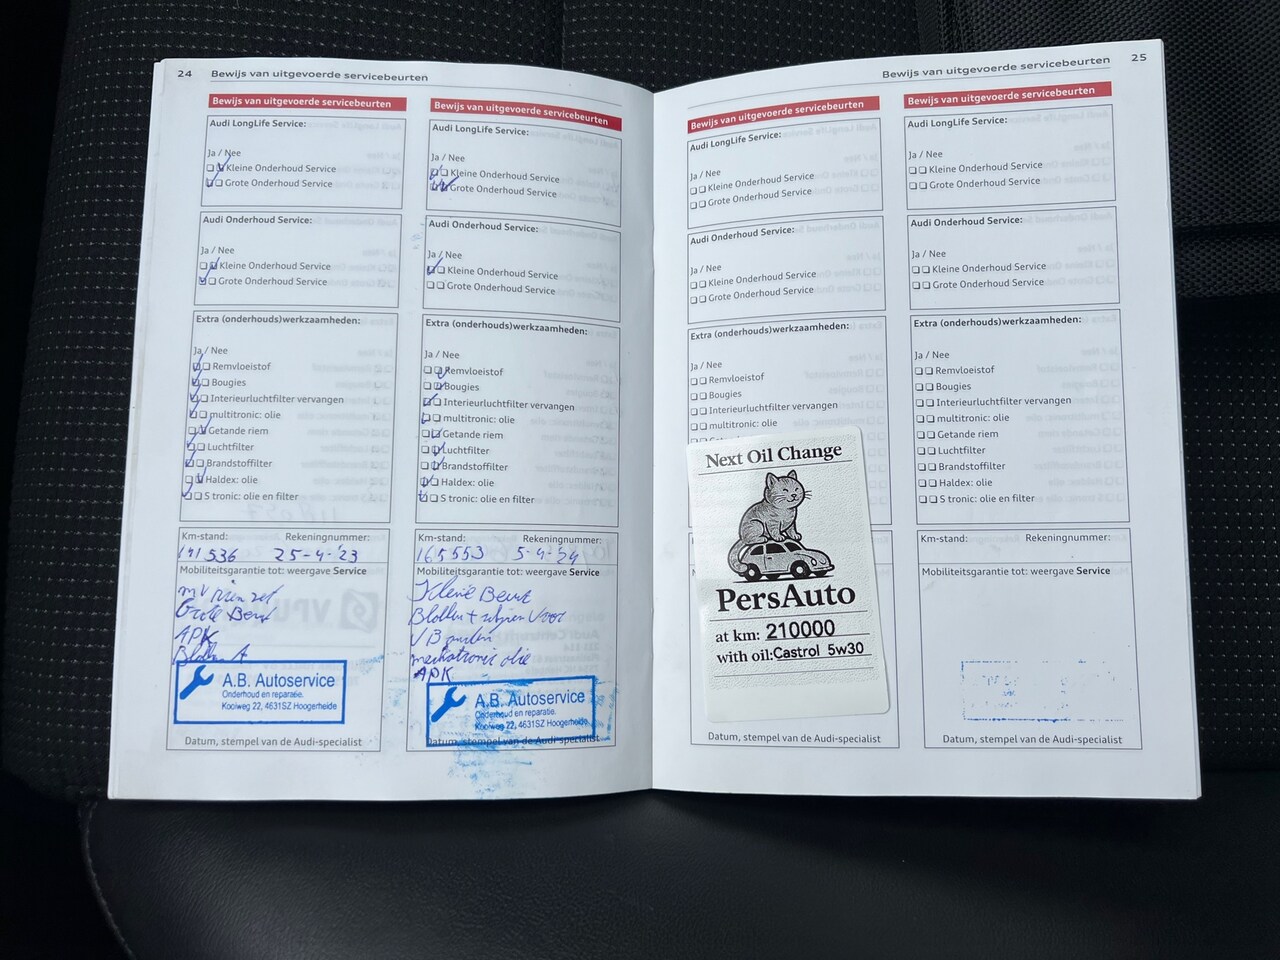 24 Bewijs van uitgevoerde servicebeurten
Bewijs van uitgevoerde servicebeurten
Audi LongLife Service:
Ja / Nee
Kleine Onderhoud Service
Grote Onderhoud Service
Audi Onderhoud Service:
Ja / Nee
Kleine Onderhoud Service
Grote Onderhoud Service
Extra (onderhouds)werkzaamheden:
Ja / Nee
Remvloeistof
Bougies
Interieurluchtfilter vervangen
multitronic: olie
Getande riem
Luchtfilter
Brandstoffilter
Haldex: olie
S tronic: olie en filter
Km-stand: Rekeningnummer:
191536 25-4-'23
Mobiliteitsgarantie tot: weergave Service
Grote Beurt
APK
A.B. Autoservice
Onderhoud en reparatie.
Kooiweg 22, 4631SZ Hoogerheide
Datum, stempel van de Audi-specialist
Bewijs van uitgevoerde servicebeurten
Audi LongLife Service:
Ja / Nee
Kleine Onderhoud Service
Grote Onderhoud Service
Audi Onderhoud Service:
Ja / Nee
Kleine Onderhoud Service
Grote Onderhoud Service
Extra (onderhouds)werkzaamheden:
Ja / Nee
Remvloeistof
Bougies
Interieurluchtfilter vervangen
multitronic: olie
Getande riem
Luchtfilter
Brandstoffilter
Haldex: olie
S tronic: olie en filter
Km-stand: Rekeningnummer:
165553 5-4-'24
Mobiliteitsgarantie tot: weergave Service
Kleine Beurt
Blokken + schijven Voor
VB
mechatronic olie
APK
A.B. Autoservice
Onderhoud en reparatie.
Kooiweg 22, 4631SZ Hoogerheide
Datum, stempel van de Audi-specialist
Bewijs van uitgevoerde servicebeurten 25
Bewijs van uitgevoerde servicebeurten
Audi LongLife Service:
Ja / Nee
Kleine Onderhoud Service
Grote Onderhoud Service
Audi Onderhoud Service:
Ja / Nee
Kleine Onderhoud Service
Grote Onderhoud Service
Extra (onderhouds)werkzaamheden:
Ja / Nee
Remvloeistof
Bougies
Interieurluchtfilter vervangen
multitronic: olie
Next Oil Change
PersAuto
at km: 210000
with oil: Castrol 5w30
Datum, stempel van de Audi-specialist
Bewijs van uitgevoerde servicebeurten
Audi LongLife Service:
Ja / Nee
Kleine Onderhoud Service
Grote Onderhoud Service
Audi Onderhoud Service:
Ja / Nee
Kleine Onderhoud Service
Grote Onderhoud Service
Extra (onderhouds)werkzaamheden:
Ja / Nee
Remvloeistof
Bougies
Interieurluchtfilter vervangen
multitronic: olie
Getande riem
Luchtfilter
Brandstoffilter
Haldex: olie
S tronic: olie en filter
Km-stand: Rekeningnummer:
Mobiliteitsgarantie tot: weergave Service
Datum, stempel van de Audi-specialist